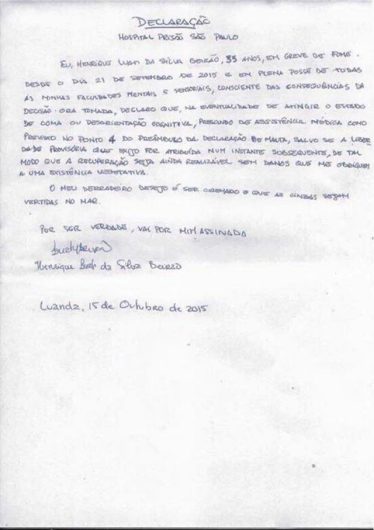 DECLARAÇÃO
HOSPITAL PRISÃO SÃO PAULO
EU, HENRIQUE LUATY DA SILVA BEIRÃO, 33 ANOS, EM GREVE DE FOME
DESDE O DIA 21 DE SETEMBRO DE 2015 E EM PLENA POSSE DE TODAS
AS MINHAS FACULDADES MENTAIS E SENSORIAIS, CONSCIENTE DAS CONSEQUÊNCIAS DA
DECISÃO ORA TOMADA, DECLARO QUE, NA EVENTUALIDADE DE ATINGIR O ESTADO
DE COMA OU DESORIENTAÇÃO COGNITIVA, PRESCINDO DE ASSISTÊNCIA MÉDICA COMO
PREVISTO NO PONTO 4 DO PREÂMBULO DA DECLARAÇÃO DE MALTA, SALVO SE A LIBER
DADE PROVISÓRIA QUE EXIJO FOR ATRIBUÍDA NUM INSTANTE SUBSEQUENTE, DE TAL
MODO QUE A RECUPERAÇÃO SEJA AINDA REALIZÁVEL SEM DANOS QUE ME OBRIGUEM
A UMA EXISTÊNCIA VEGETATIVA.
O MEU DERRADEIRO DESEJO É SER CREMADO E QUE AS CINZAS SEJAM
VERTIDAS NO MAR.
POR SER VERDADE, VAI POR MIM ASSINADA
Henrique Luaty da Silva Beirão
Luanda, 15 de Outubro de 2015